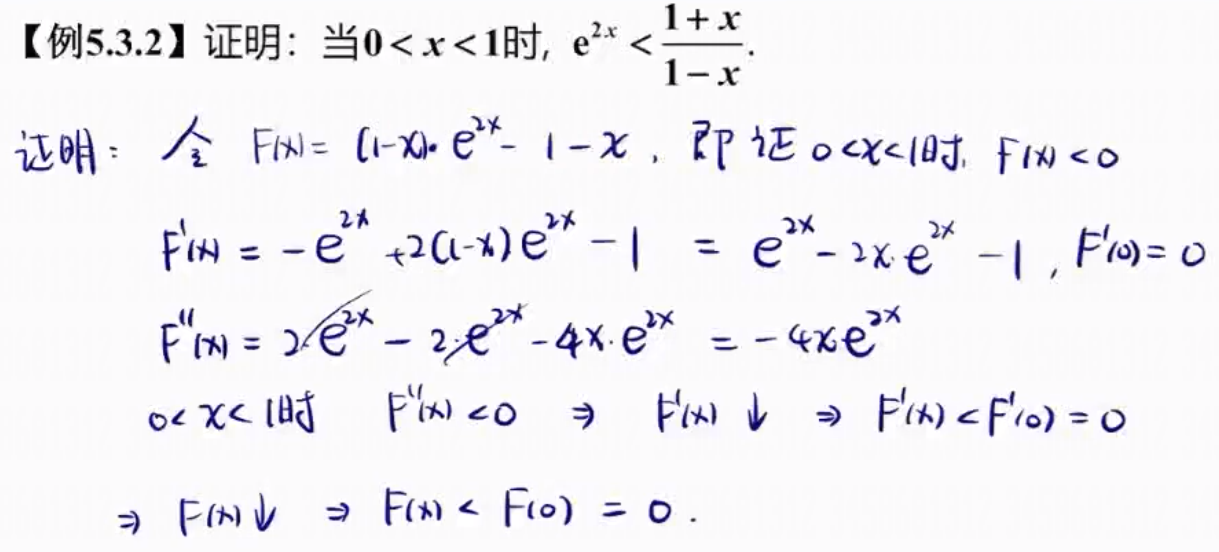 【例5.3.2】证明：当0 < x < 1时, e^{2x} < \frac{1+x}{1-x}.
证明： 令 F(x) = (1-x)·e^{2x} - 1 - x , 即证 0<x<1时, F(x) < 0
F'(x) = -e^{2x} + 2(1-x)e^{2x} - 1 = e^{2x} - 2x·e^{2x} - 1 , F'(0) = 0
F''(x) = 2e^{2x} - 2·e^{2x} - 4x·e^{2x} = -4xe^{2x}
0< x< 1时 F''(x) <0 ⇒ F'(x) ↓ ⇒ F'(x) < F'(0) = 0
⇒ F(x)↓ ⇒ F(x) < F(0) = 0 .